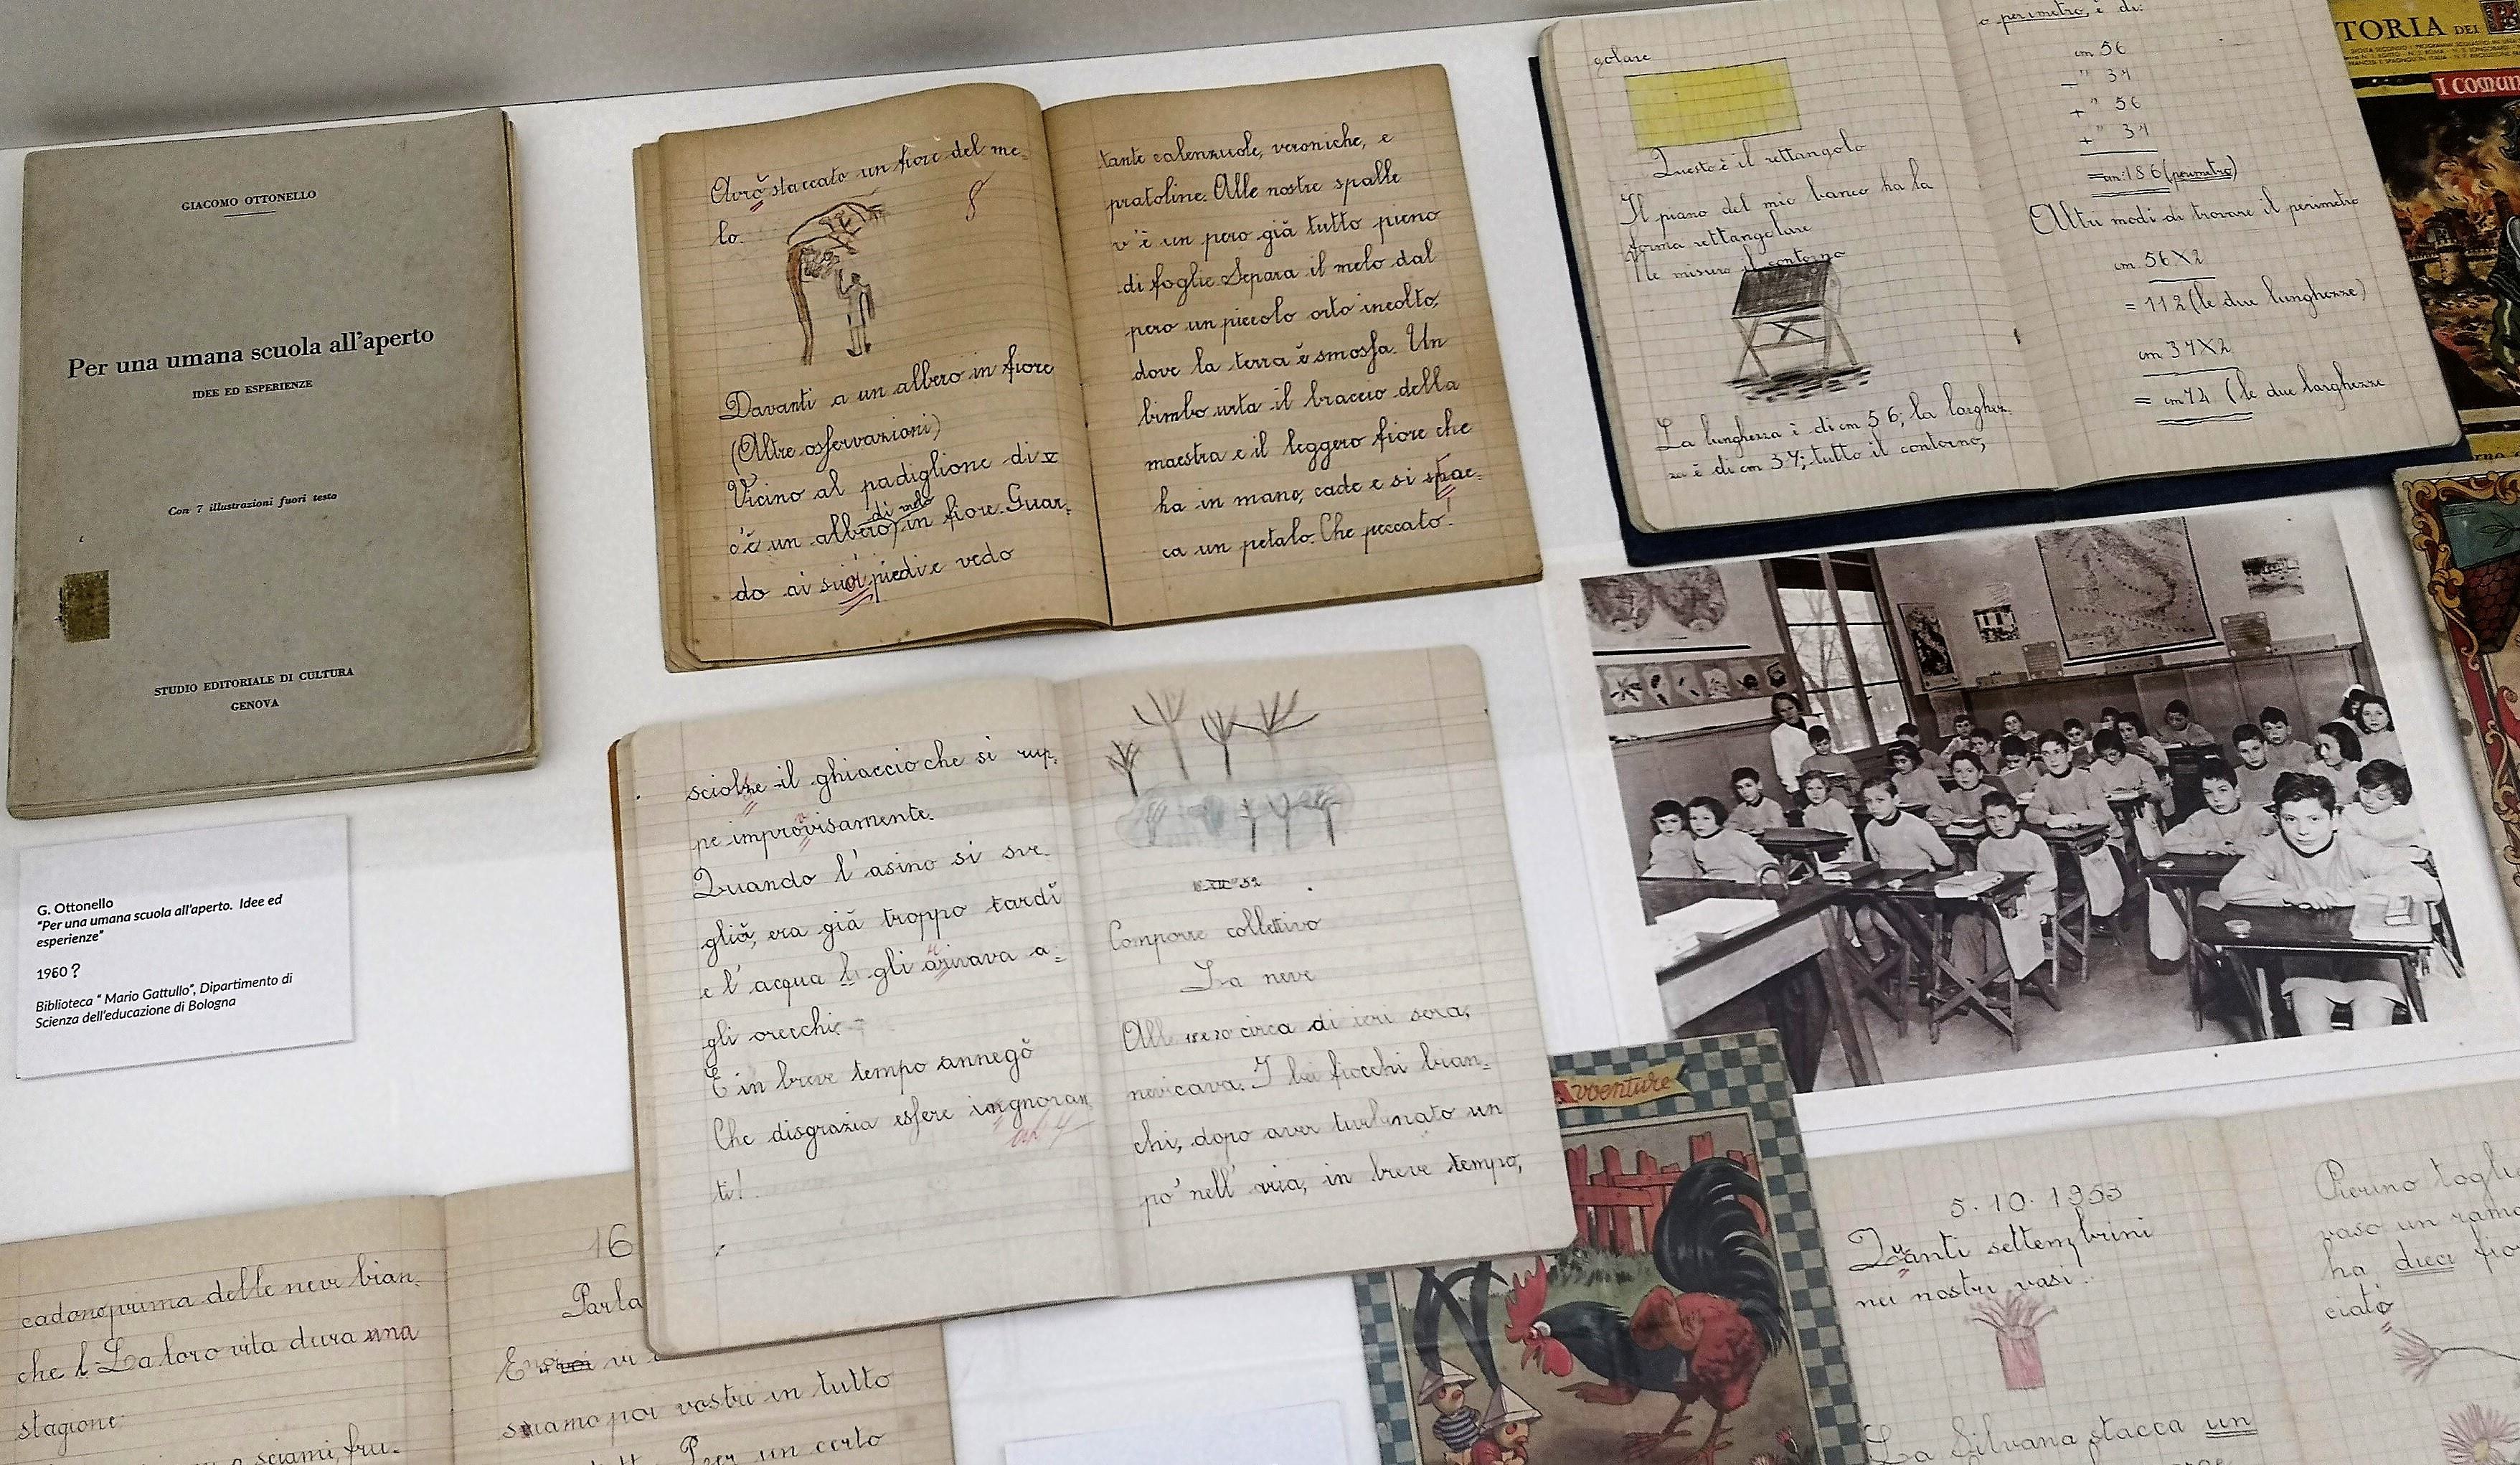 GIACOMO OTTONELLO
Per una umana scuola all'aperto
IDEE ED ESPERIENZE
Con 7 illustrazioni fuori testo
STUDIO EDITORIALE DI CULTURA
GENOVA
G. Ottonello
"Per una umana scuola all'aperto. Idee ed
esperienze"
1960 ?
Biblioteca " Mario Gattullo", Dipartimento di
Scienza dell'educazione di Bologna
Avrò staccato un fiore del me-
lo.
8
Davanti a un albero in fiore
(Altre osservazioni)
Vicino al padiglione di V
c'è un albero di melo in fiore. Guar-
do ai suoi piedi e vedo
tante calenzuole, veroniche, e
pratoline. Alle nostre spalle
v'è un pero già tutto pieno
di foglie Separa il melo dal
pero un piccolo orto incolto,
dove la terra è smossa. Un
bimbo urta il braccio della
maestra e il leggero fiore che
ha in mano, cade e si spac-
ca un petalo. Che peccato!
golare
Questo è il rettangolo
Il piano del mio banco ha la
forma rettangolare
Ne misuro il contorno
La lunghezza è di cm 56; la larghez-
za è di cm 37; tutto il contorno,
o perimetro, è di:
cm 56
+ " 37
+ " 56
+ " 37
= cm 186 (perimetro)
Altri modi di trovare il perimetro
cm 56X2
= 112 (le due lunghezze)
cm 37X2
= cm 74 (le due larghezze
TORIA DEI
I COMUN
sciolse il ghiaccio che si rup-
pe improvvisamente.
Quando l'asino si sve-
gliò, era già troppo tardi
e l'acqua gli arrivava a-
gli orecchi
E in breve tempo annegò
Che disgrazia essere ingnoran
ti!
52
Comporre collettivo
La neve
Alle circa di ieri sera,
nevicava. I bei fiocchi bian-
chi, dopo aver turbinato un
po' nell' aria, in breve tempo,
cadono prima delle neve bian-
che. La loro vita dura una
stagione
sciami, fru-
16
Parla
E voi vi
siamo poi vostri in tutto
Per un certo
Avventure
5. 10. 1953
Quanti settembrini
nei nostri vasi!
La Silvana stacca un
Pierino togli
vaso un ramo
ha dieci fio
ciato